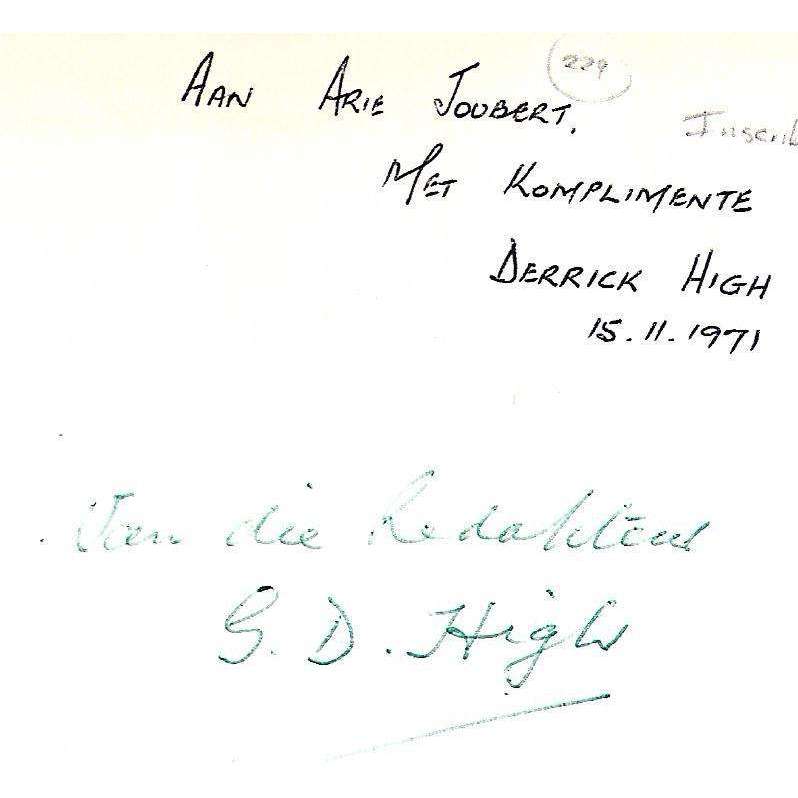 229
AAN ARIE JOUBERT.
Inscrib
MET KOMPLIMENTE
DERRICK HIGH
15.11.1971
Van die Redakteur
G. D. High